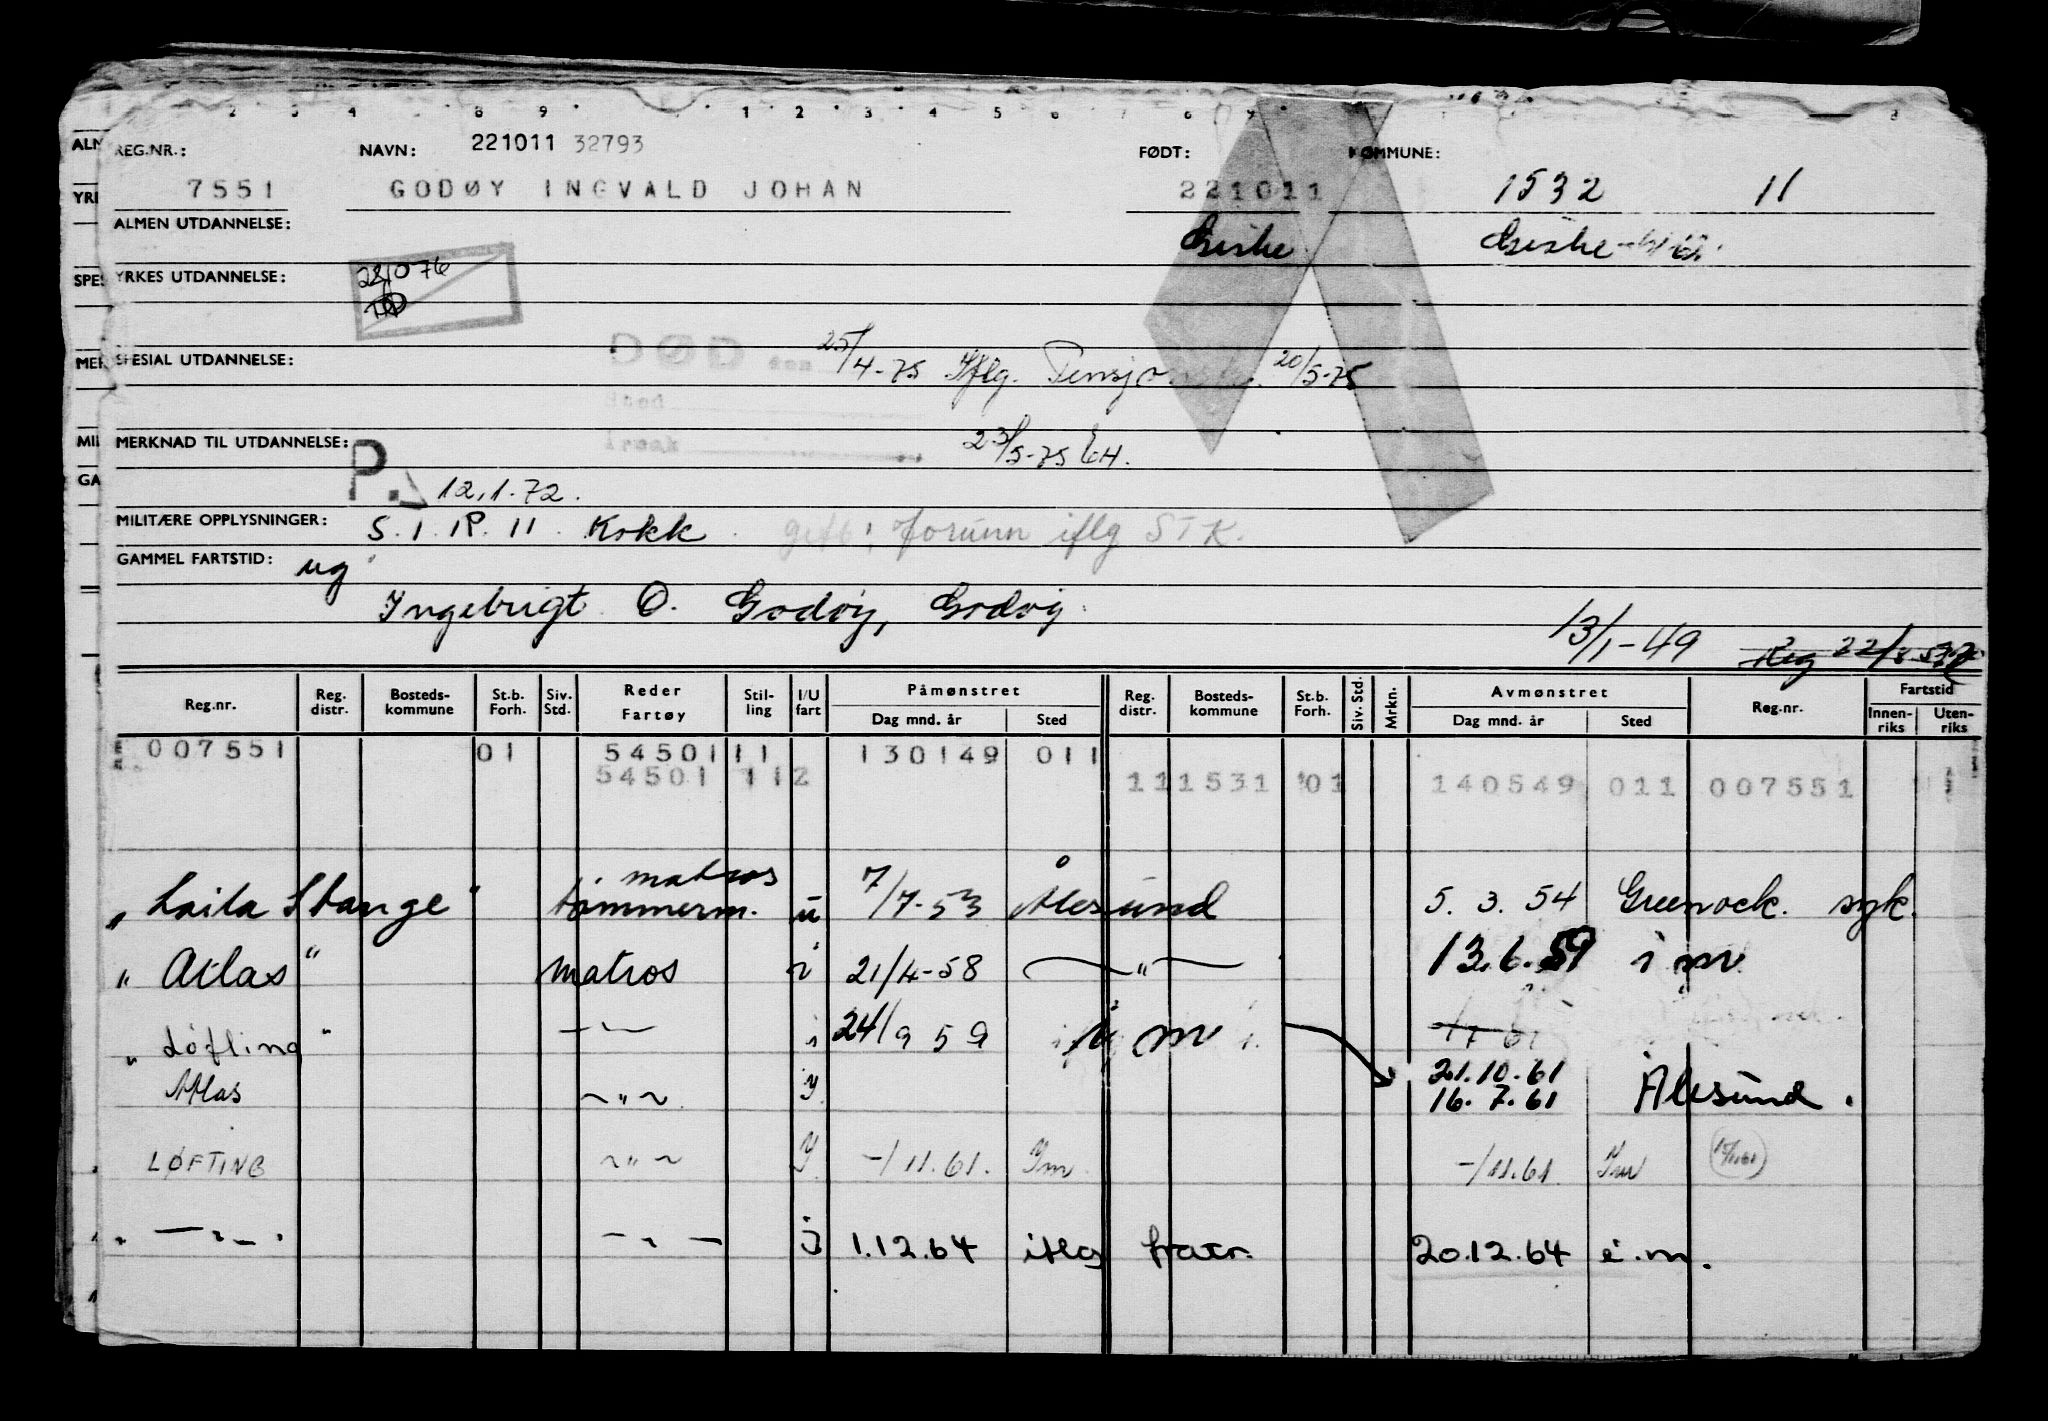 REG.NR.: NAVN: 221011 32793 FØDT: KOMMUNE:
7551 GODØY INGVALD JOHAN 221011 1532 11
ALMEN UTDANNELSE: Giske Giske
YRKES UTDANNELSE: 221076
SPESIAL UTDANNELSE: DØD den 25/4-75 Iflg. 20/5-75
Sted
Årsak 23/5-75 EH.
MERKNAD TIL UTDANNELSE:
P. 12.1.72.
MILITÆRE OPPLYSNINGER: S.1.1P.11. Kokk. gift: Jorunn iflg STK.
GAMMEL FARTSTID: ug
Ingebrigt O. Godøy, Godøy.
13/1-49 Reg 22/8
Reg.nr. Reg. distr. Bosteds-kommune St.b. Forh. Siv. Std. Reder Fartøy Stil-ling I/U fart Påmønstret Dag mnd. år Sted Reg. distr. Bosteds-kommune St.b. Forh. Siv. Std. Mrkn. Avmønstret Dag mnd. år Sted Reg.nr. Fartstid Innen-riks Uten-riks
007551 01 5450111 130149 011
54501 112 111531 01 140549 011 007551
matros
"Laila Stange" tømmerm. u 7/7-53 Ålesund 5. 3. 54 Greenock. syk.
"Atlas" matros i 21/4-58 — " — 13.6.59 i m
"Løfting" — " — i 24/9 59 i m -/7 61
21.10.61
Atlas ~ " ~ y 16.7.61 Ålesund.
LØFTING ~ " ~ y -/11.61. Im -/11.61. Im
" — " — " — " — i 1.12.64 iflg fratr. 20.12.64 i.m.